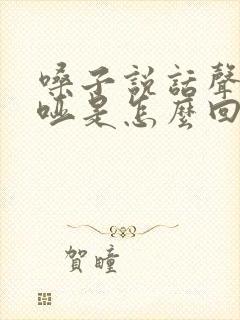 嗓子説話聲
啞是怎麽回
賀瞳